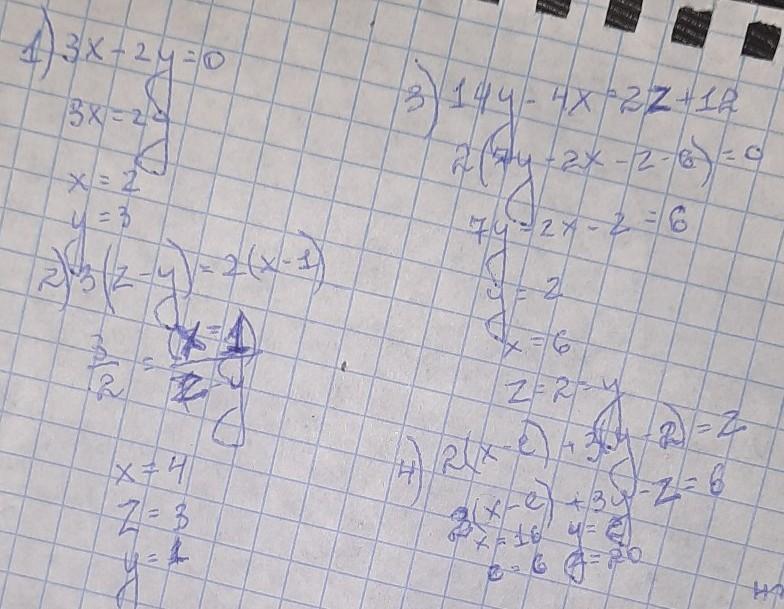 1) 3x - 2y = 0
3x = 2y
x = 2
y = 3
2) 3(z - y) = 2(x - 1)
3/2 = (x - 1)/(z - y)
x = 4
z = 3
y = 1
3) 14y - 4x = 2z + 12
2(7y - 2x - z - 6) = 0
7y - 2x - z = 6
y = 2
x = 6
z = 2 = y
4) 2(x - e) + 3(y - 2) = z
2(x - e) + 3y - z = 6
x = 16 y =
e = 6 = 20